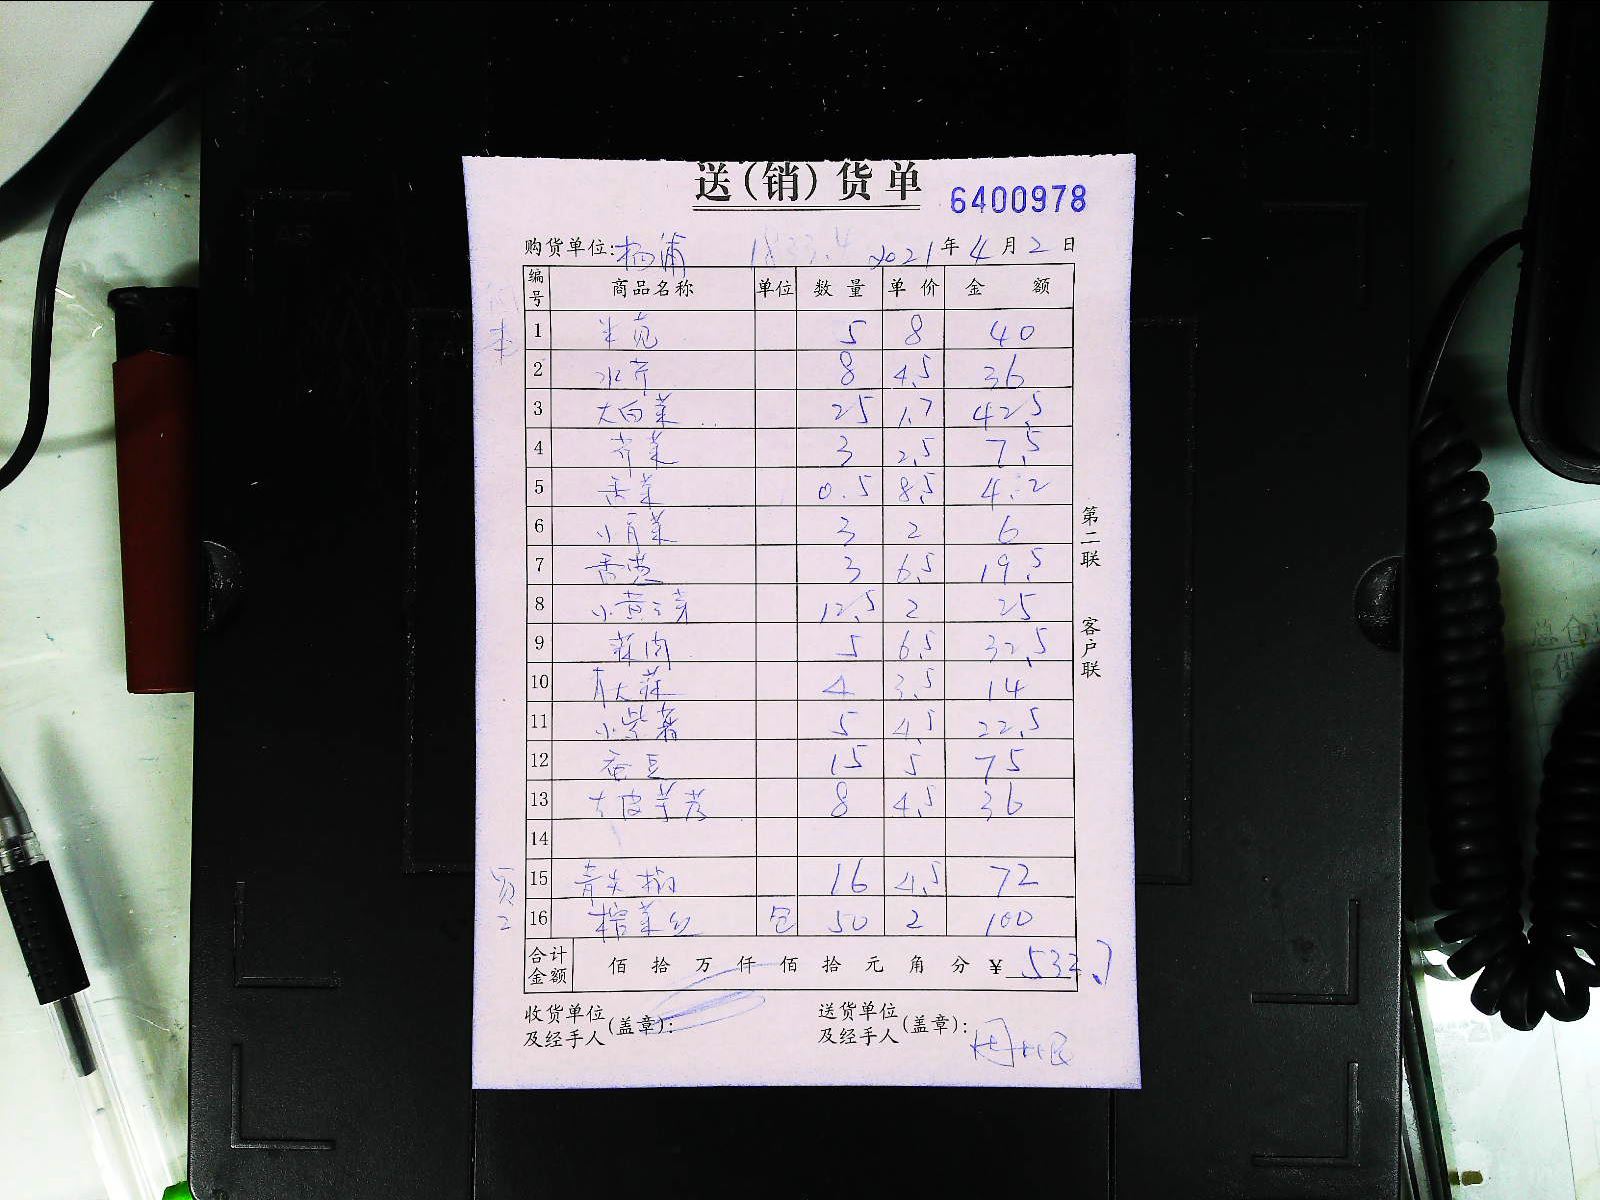 送(销)货单
6400978
购货单位:杨浦 1833.4 2021年4月2日
编号 商品名称 单位 数量 单价 金额
1 米苋 5 8 40
2 水芹 8 4.5 36
3 大白菜 25 1.7 42.5
4 芥菜 3 2.5 7.5
5 香菜 0.5 8.5 4.2
6 小青菜 3 2 6
7 香葱 3 6.5 19.5
8 小黄芽 12.5 2 25
9 蒜肉 5 6.5 32.5
10 青大蒜 4 3.5 14
11 小紫薯 5 4.5 22.5
12 蚕豆 15 5 75
13 大皮芋艿 8 4.5 36
14
15 青尖椒 16 4.5 72
16 榨菜丝 包 50 2 100
合计金额 佰 拾 万 仟 佰 拾 元 角 分 ¥ 532.7
收货单位及经手人(盖章):
送货单位及经手人(盖章):
第二联 客户联